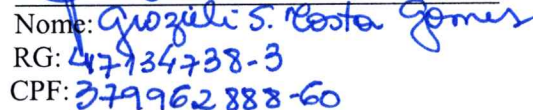 Nome: Grozieli S. Costa Gomes
RG: 47134738-3
CPF: 379962888-60